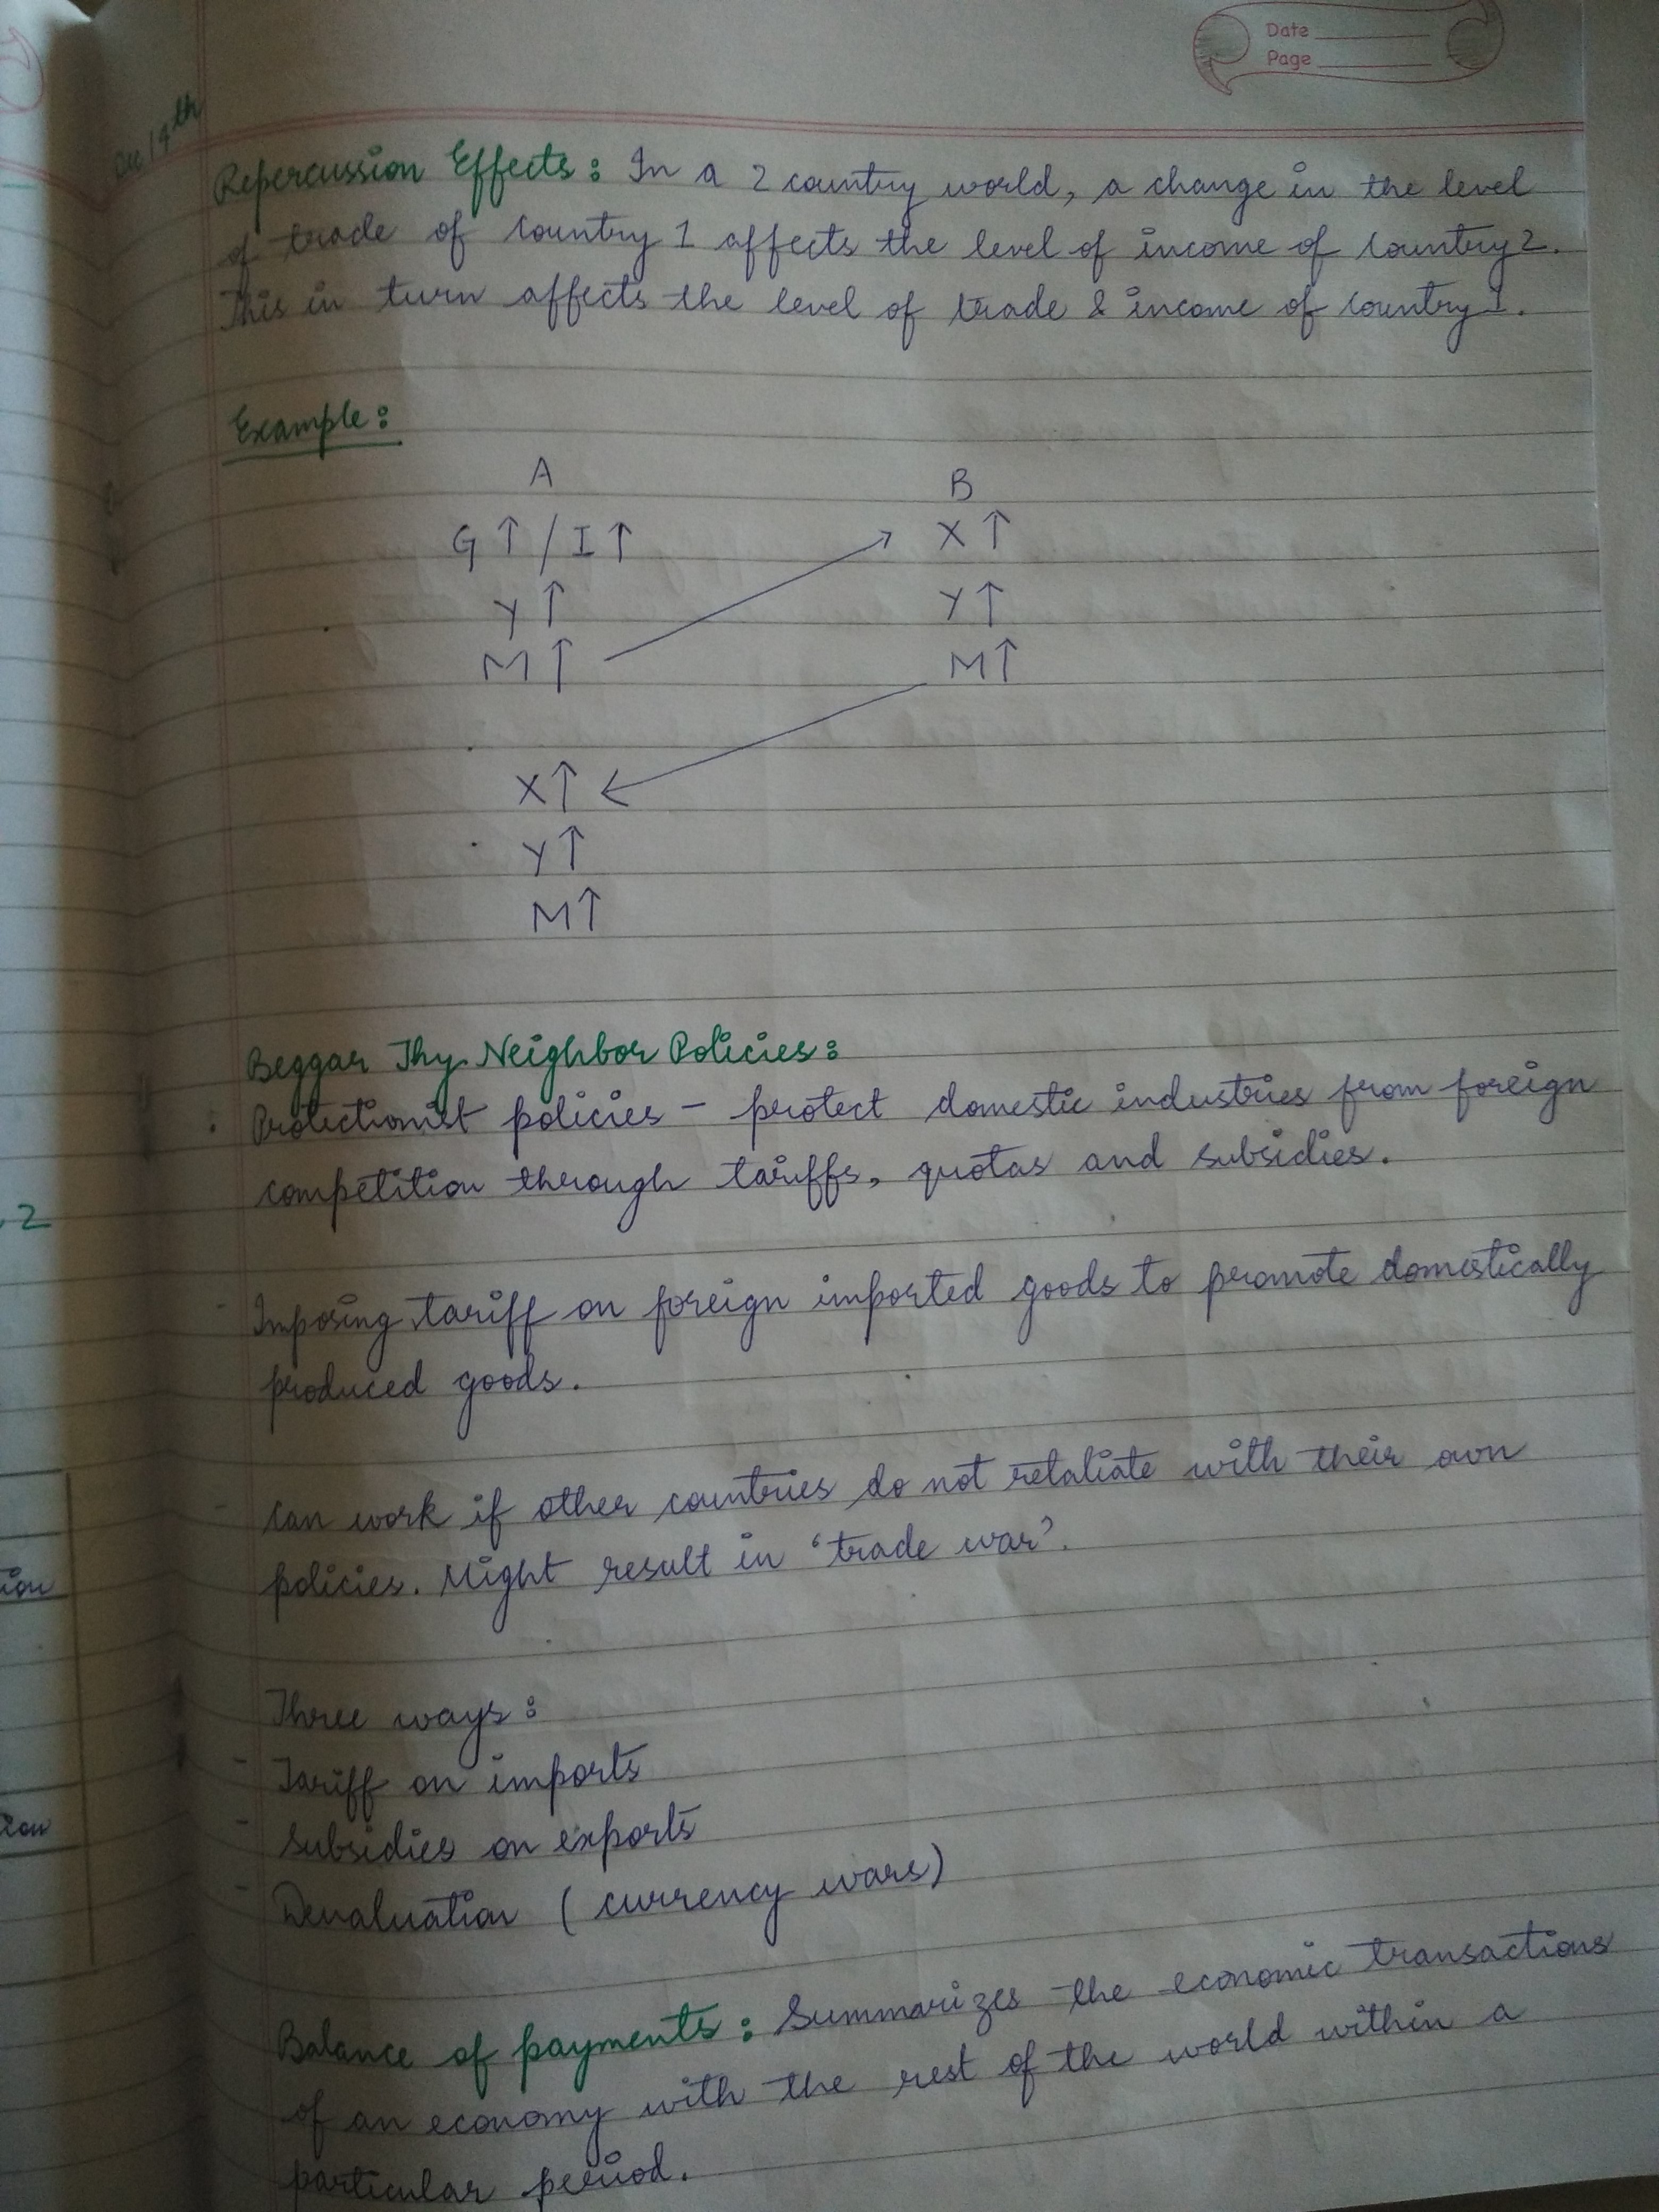 Date
Page
Dec 19th
Repercussion Effects: In a 2 country world, a change in the level
of trade of country 1 affects the level of income of country 2.
This in turn affects the level of trade & income of country 1.
Example:
A B
G↑ / I↑ X↑
Y↑ Y↑
M↑ M↑
X↑
Y↑
M↑
Beggar Thy Neighbor Policies:
Protectionist policies - protect domestic industries from foreign
competition through tariffs, quotas and subsidies.
- Imposing tariff on foreign imported goods to promote domestically
produced goods.
- Can work if other countries do not retaliate with their own
policies. Might result in 'trade war'.
Three ways:
- Tariff on imports
- Subsidies on exports
- Devaluation (currency wars)
Balance of payments: Summarizes the economic transactions
of an economy with the rest of the world within a
particular period.